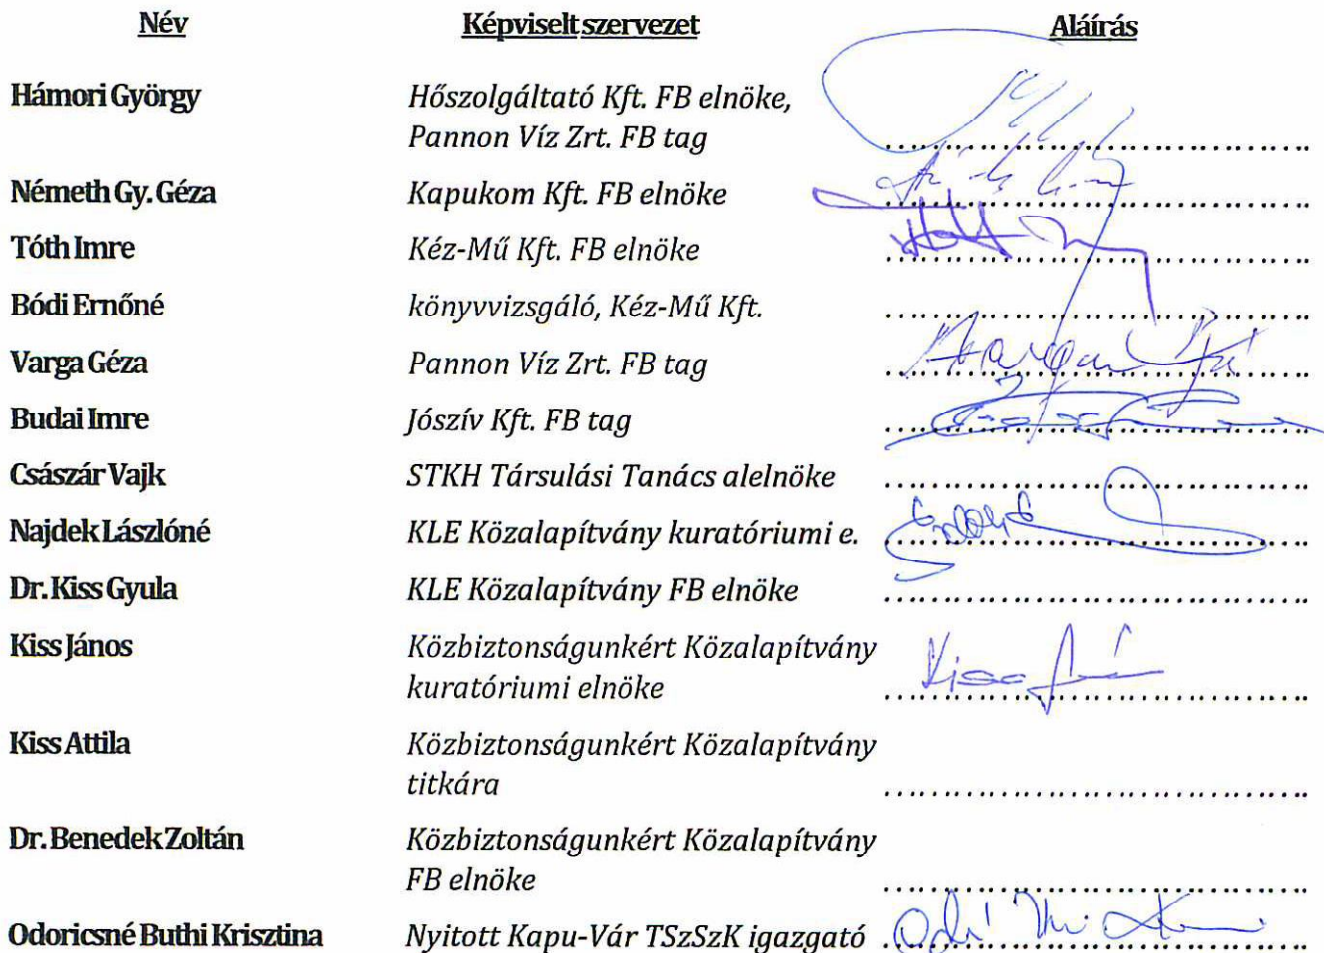 Név Képviselt szervezet Aláírás
Hámori György Hőszolgáltató Kft. FB elnöke,
Pannon Víz Zrt. FB tag
Németh Gy. Géza Kapukom Kft. FB elnöke
Tóth Imre Kéz-Mű Kft. FB elnöke
Bódi Ernőné könyvvizsgáló, Kéz-Mű Kft.
Varga Géza Pannon Víz Zrt. FB tag
Budai Imre Jószív Kft. FB tag
Császár Vajk STKH Társulási Tanács alelnöke
Najdek Lászlóné KLE Közalapítvány kuratóriumi e.
Dr. Kiss Gyula KLE Közalapítvány FB elnöke
Kiss János Közbiztonságunkért Közalapítvány
kuratóriumi elnöke Kiss
Kiss Attila Közbiztonságunkért Közalapítvány
titkára
Dr. Benedek Zoltán Közbiztonságunkért Közalapítvány
FB elnöke
Odoricsné Buthi Krisztina Nyitott Kapu-Vár TSzSzK igazgató